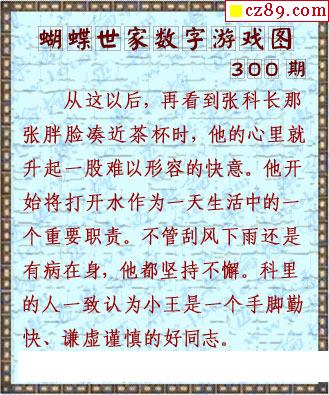 cz89.com
蝴蝶世家数字游戏图
300 期
从这以后，再看到张科长那
张胖脸凑近茶杯时，他的心里就
升起一股难以形容的快意。他开
始将打开水作为一天生活中的一
个重要职责。不管刮风下雨还是
有病在身，他都坚持不懈。科里
的人一致认为小王是一个手脚勤
快、谦虚谨慎的好同志。